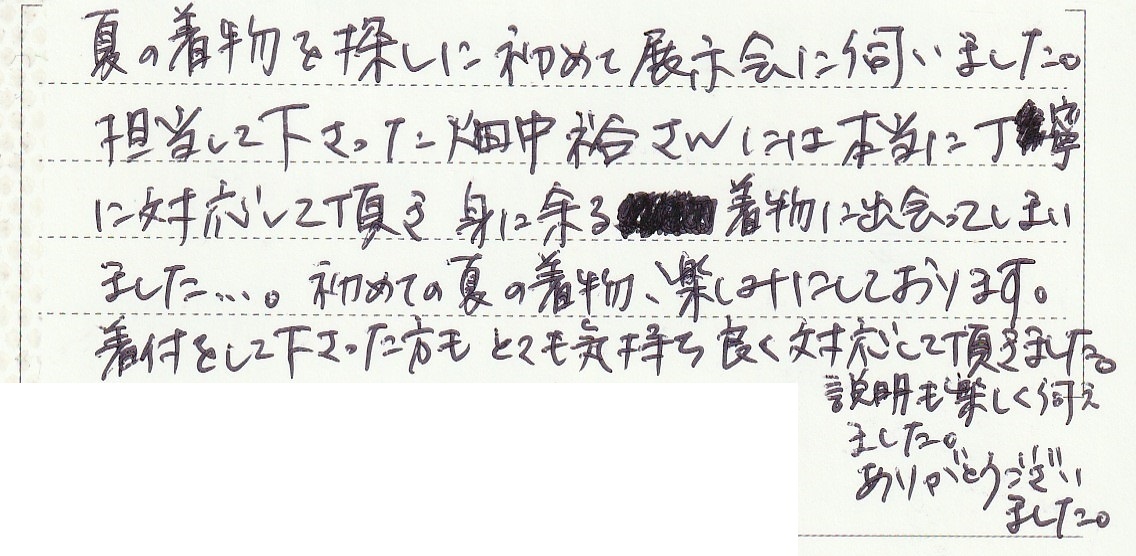 夏の着物を探しに初めて展示会に伺いました。
担当して下さった畑中裕さんには本当に丁寧
に対応して頂き身に余る着物に出会ってしまい
ました…。初めての夏の着物、楽しみにしております。
着付をして下さった方もとても気持ち良く対応して頂きました。
説明も楽しく伺え
ました。
ありがとうござい
ました。